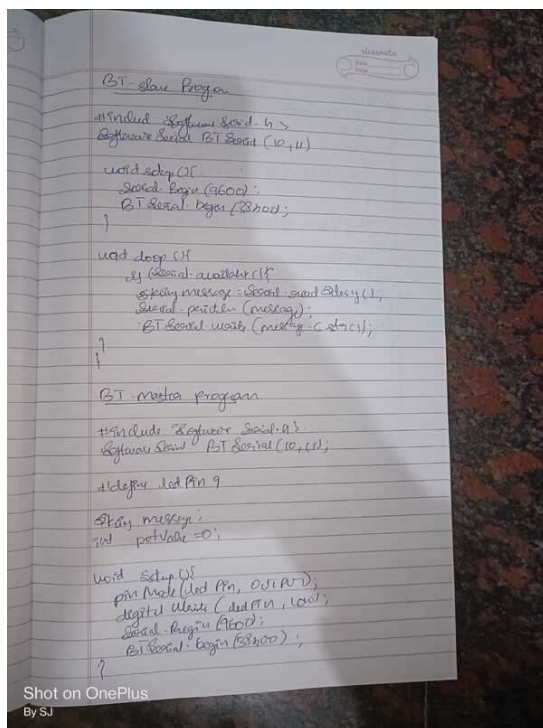 classmate
Date
Page
BT-slave Program
#includ Software Serial.h>
Software Serial BT Serial (10,11)
void setup (){
Serial. Begin (9600);
BT Serial. begin (38400);
}
void loop (){
if (Serial.available()){
String message = Serial.read String();
Serial.println (message);
BT Serial.write (message.C_str());
}
}
BT-master program
#include Software Serial.h>
Software Serial BT Serial (10,11);
#define led Pin 9
String message;
int potValue =0;
void Setup (){
pin Mode (led Pin, OUTPUT);
digital Write (led Pin, LOW);
Serial. Begin (9600);
BT Serial. begin (38400);
}
Shot on OnePlus
By SJ